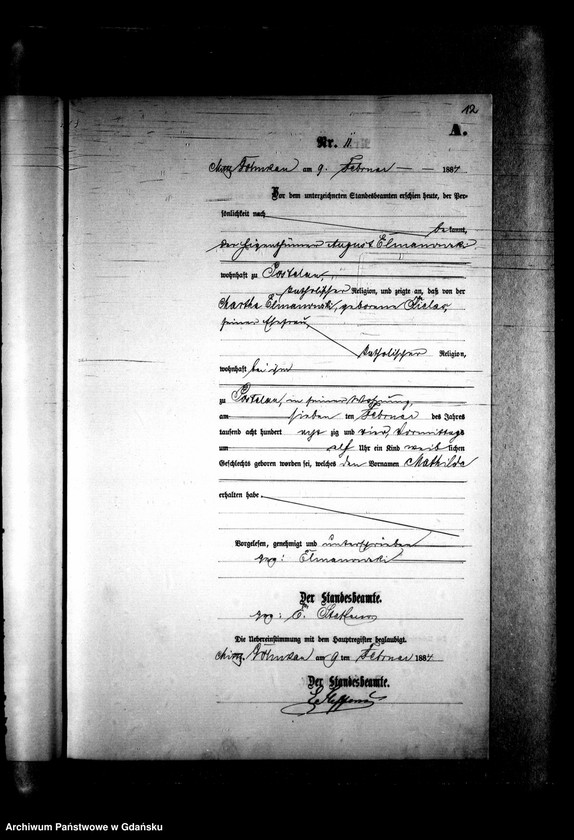 12
A.
Nr. 11
am 9. Februar 1884
Vor dem unterzeichneten Standesbeamten erschien heute, der Per-
sönlichkeit nach
bekannt,
der Eigenthümer August Elmanowski
wohnhaft zu
katholischer Religion, und zeigte an, daß von der
Martha Elmanowski, geborene
seiner Ehefrau,
katholischer Religion,
wohnhaft bei ihm
zu in seiner Wohnung,
am sieben ten Februar des Jahres
tausend acht hundert acht zig und vier, Vormittags
um elf Uhr ein Kind weib lichen
Geschlechts geboren worden sei, welches den Vornamen Mathilde
erhalten habe
Vorgelesen, genehmigt und unterschrieben
gez: Elmanowski
Der Standesbeamte.
gez: E.
Die Uebereinstimmung mit dem Hauptregister beglaubigt.
am 9 ten Februar 1884
Der Standesbeamte.
Archiwum Państwowe w Gdańsku